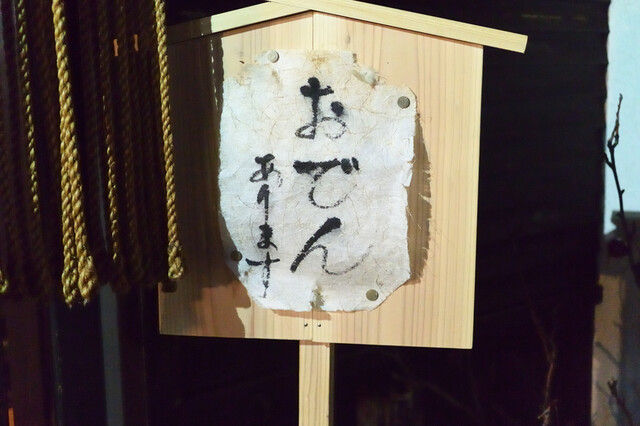 おでん
あります